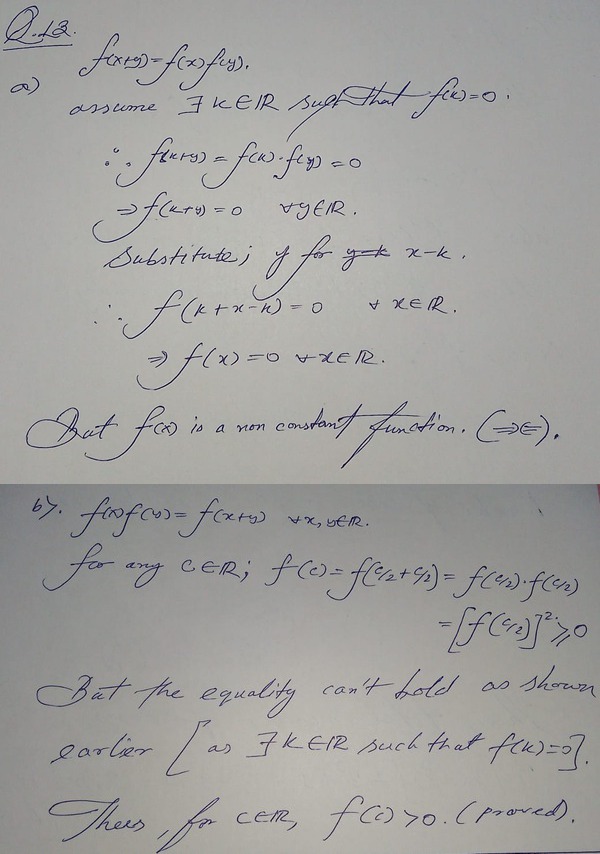 Q.13.
f(x+y)=f(x)f(y).
a)
assume ∃ k∈ℝ such that f(k)=0.
∴ f(k+y) = f(k)·f(y) = 0
⇒ f(k+y) = 0 ∀y∈ℝ.
Substitute; y for y-k x-k.
∴ f(k+x-k) = 0 ∀ x∈ℝ.
⇒ f(x) = 0 ∀x∈ℝ.
But f(x) is a non constant function. (⇒⇐).
b). f(x)f(y) = f(x+y) ∀x,y∈ℝ.
for any c∈ℝ; f(c) = f(c/2+c/2) = f(c/2)·f(c/2)
=[f(c/2)]²≥0
But the equality can't hold as shown
earlier [as ∃ k∈ℝ such that f(k)=0].
Thus, for c∈ℝ, f(c)>0. (proved).